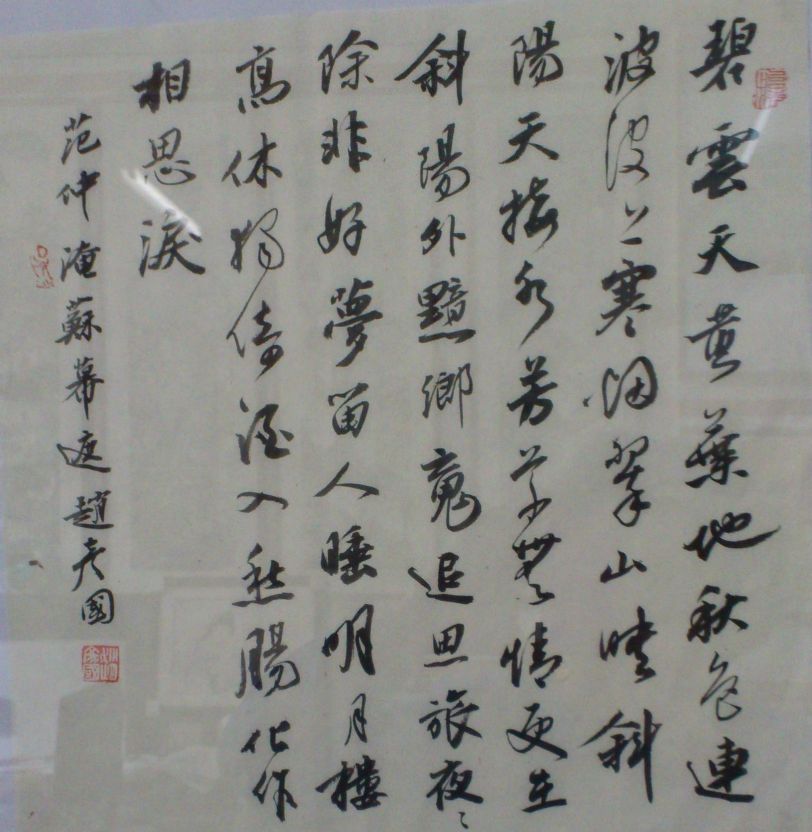 碧雲天黃葉地秋色連
波波上寒烟翠山映斜
陽天接水芳草無情更在
斜陽外黯鄉魂追思旅夜々
除非好夢留人睡明月樓
高休獨倚酒入愁腸化作
相思淚
范仲淹蘇幕遮 趙國